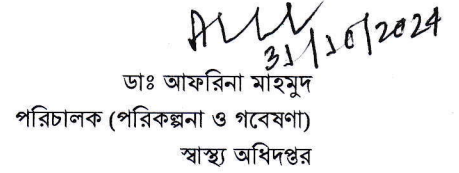 31/10/2024
ডাঃ আফরিনা মাহমুদ
পরিচালক (পরিকল্পনা ও গবেষণা)
স্বাস্থ্য অধিদপ্তর